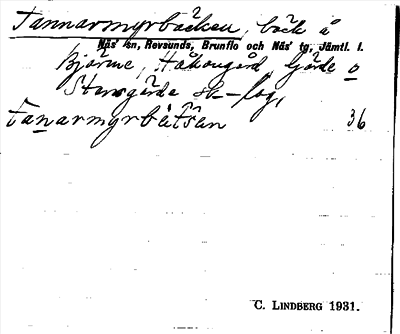 Tannarmyrbäcken, bäck å
Näs' sn, Revsunds, Brunflo och Näs' tg, Jämtl. l.
Bjärme, Håkongård Gärde o
Stensgärde sk-lag,
Tanarmyrbätsän 36
C. LINDBERG 1931.